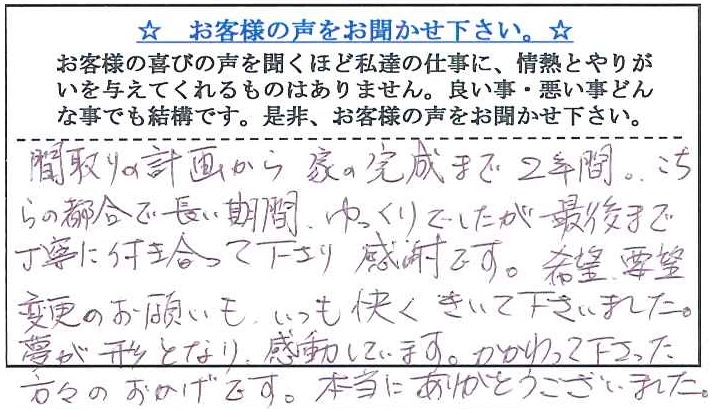 ☆　お客様の声をお聞かせ下さい。☆
お客様の喜びの声を聞くほど私達の仕事に、情熱とやりが
いを与えてくれるものはありません。良い事・悪い事どん
な事でも結構です。是非、お客様の声をお聞かせ下さい。
間取りの計画から 家の完成まで 2年間。こち
らの都合で長い期間、ゆっくりでしたが 最後まで
丁寧に付き合って下さり 感謝です。希望、要望
変更のお願いも、いつも快くきいて下さいました。
夢が形となり、感動しています。かかわって下さった
方々のおかげです。本当にありがとうございました。